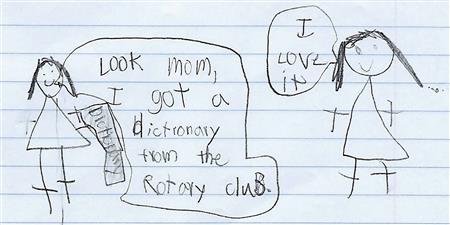 Look mom,
I got a
dictronary
from the
Rotary cluB.
Dictionary
I
Love
it